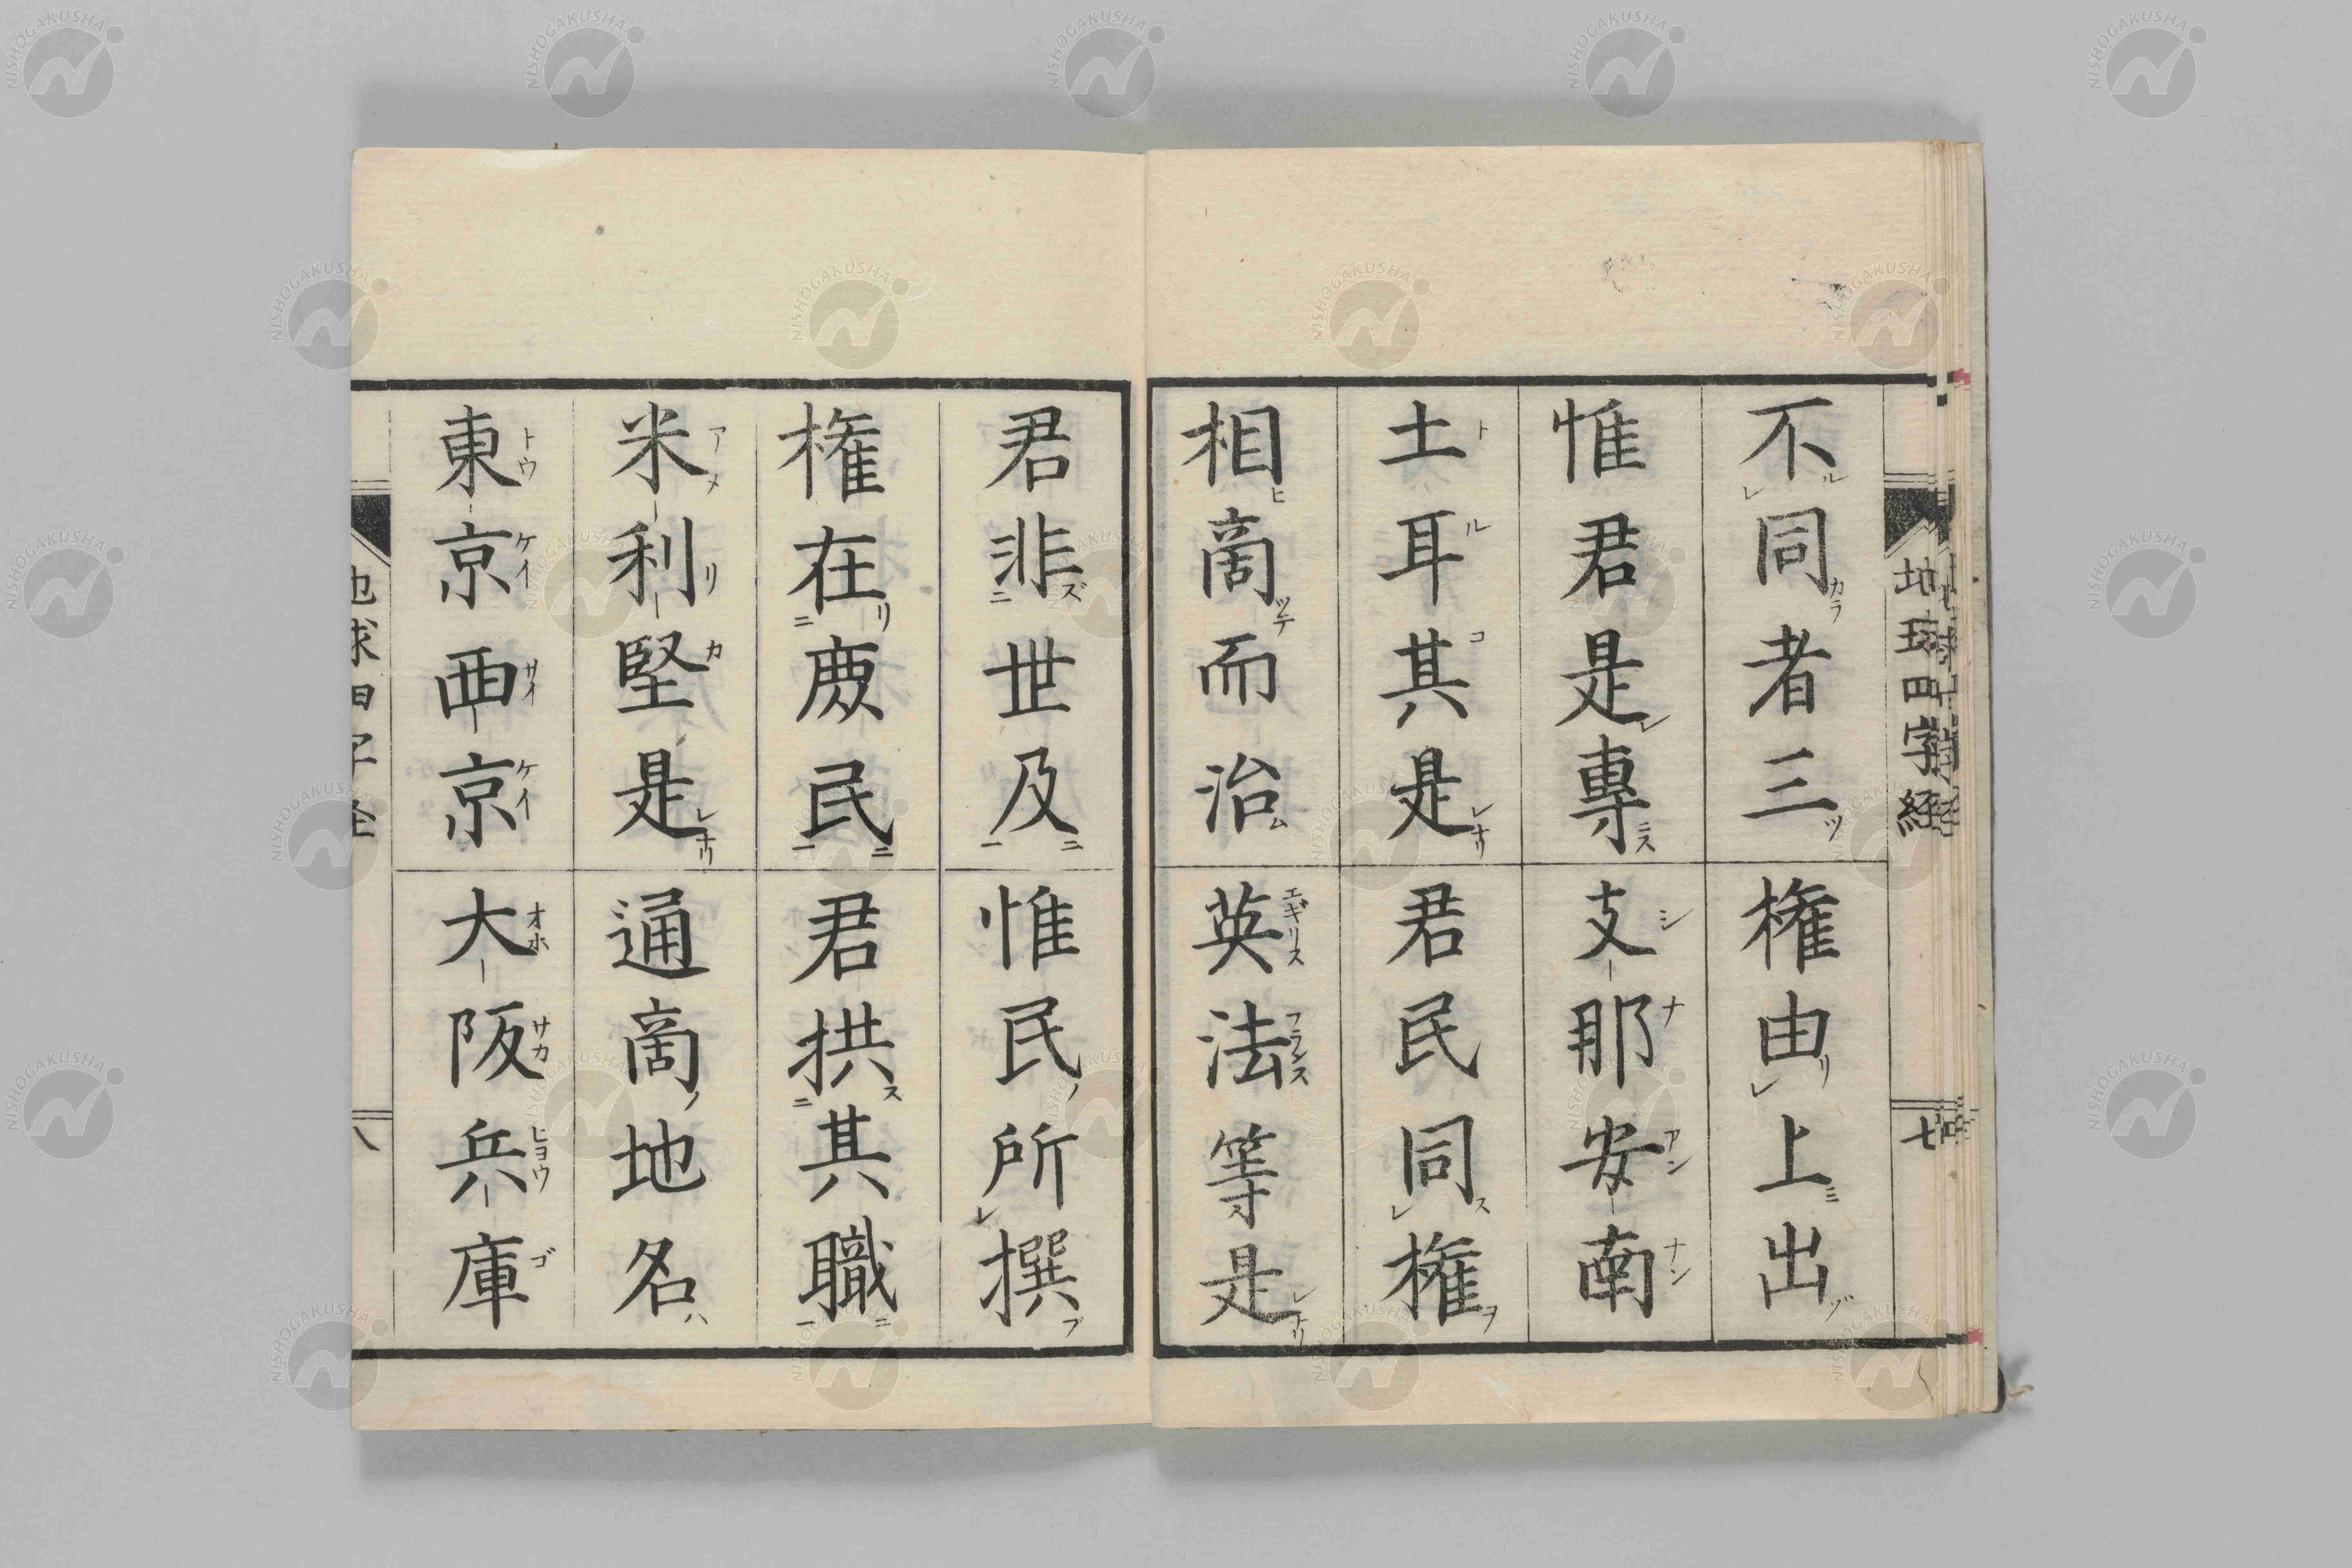 不同者三 権由上出
惟君是專 支那安南
土耳其是 君民同権
相啇而治 英法等是
君非世及 惟民所撰
権在庻民 君拱其職
米利堅是 通啇地名
東京西京 大阪兵庫
地球四字経
七
NISHOGAKUSHA